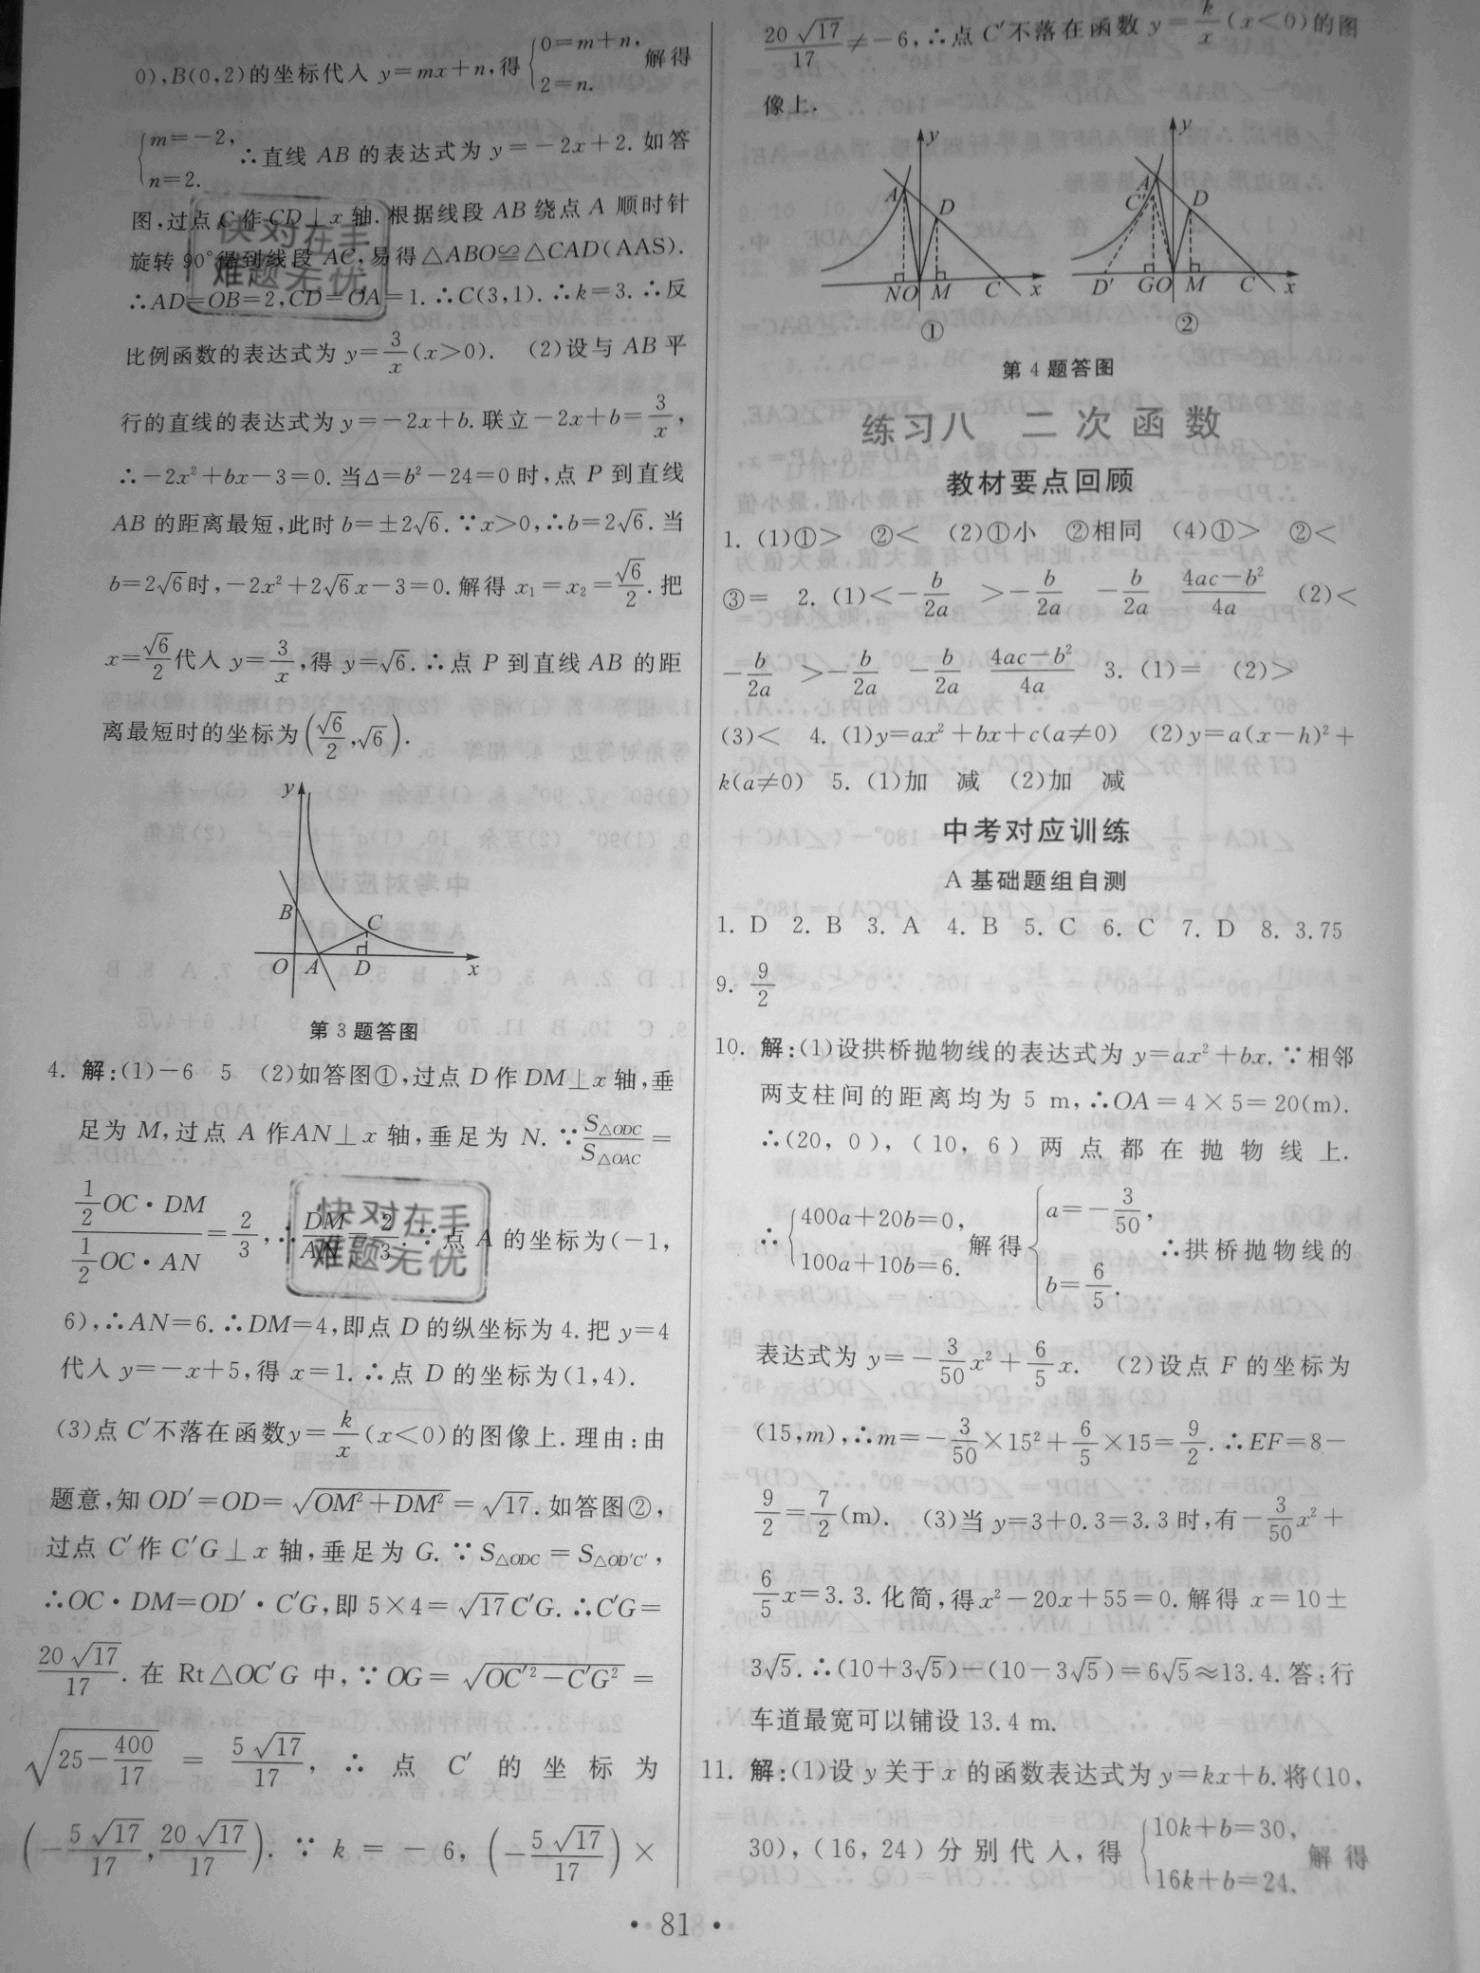 0),B(0,2)的坐标代入 y=mx+n,得{0=m+n, 2=n. 解得
{m=-2, n=2. ∴直线 AB 的表达式为 y=-2x+2. 如答
图,过点 C 作 CD⊥x 轴. 根据线段 AB 绕点 A 顺时针
旋转 90°得到线段 AC,易得△ABO≌△CAD(AAS).
∴AD=OB=2,CD=OA=1. ∴C(3,1). ∴k=3. ∴反
比例函数的表达式为 y=3/x(x>0). (2)设与 AB 平
行的直线的表达式为 y=-2x+b. 联立-2x+b=3/x,
∴-2x²+bx-3=0. 当Δ=b²-24=0 时,点 P 到直线
AB 的距离最短,此时 b=±2√6. ∵x>0,∴b=2√6. 当
b=2√6时,-2x²+2√6x-3=0. 解得 x₁=x₂=√6/2. 把
x=√6/2代入 y=3/x,得 y=√6. ∴点 P 到直线 AB 的距
离最短时的坐标为(√6/2,√6).
y
B
C
O A D x
第 3 题答图
4. 解:(1)-6 5 (2)如答图①,过点 D 作 DM⊥x 轴,垂
足为 M,过点 A 作AN⊥x 轴,垂足为 N. ∵S△ODC/S△OAC=
(1/2 OC·DM)/(1/2 OC·AN)=2/3,∴DM/AN=2/3. ∵点 A 的坐标为(-1,
6),∴AN=6. ∴DM=4,即点 D 的纵坐标为 4. 把 y=4
代入 y=-x+5,得 x=1. ∴点 D 的坐标为(1,4).
(3)点 C′不落在函数y=k/x(x<0)的图像上. 理由:由
题意,知 OD′=OD=√(OM²+DM²)=√17. 如答图②,
过点 C′作 C′G⊥x 轴,垂足为 G. ∵S△ODC=S△OD′C′,
∴OC·DM=OD′·C′G,即 5×4=√17C′G. ∴C′G=
20√17/17. 在 Rt△OC′G 中,∵OG=√(OC′²-C′G²)=
√(25-400/17)=5√17/17,∴点 C′ 的坐标为
(-5√17/17,20√17/17). ∵k=-6,(-5√17/17)×
快对在手
难题无忧
快对在手
难题无忧
20√17/17≠-6,∴点 C′不落在函数 y=k/x(x<0)的图
像上.
y
A D
N O M C x
①
y
A C′ D
D′ G O M C x
②
第 4 题答图
练习八 二次函数
教材要点回顾
1. (1)①> ②< (2)①小 ②相同 (4)①> ②<
③= 2. (1)<-b/2a >-b/2a -b/2a (4ac-b²)/4a (2)<
-b/2a >-b/2a -b/2a (4ac-b²)/4a 3. (1)= (2)>
(3)< 4. (1)y=ax²+bx+c(a≠0) (2)y=a(x-h)²+
k(a≠0) 5. (1)加 减 (2)加 减
中考对应训练
A 基础题组自测
1. D 2. B 3. A 4. B 5. C 6. C 7. D 8. 3.75
9. 9/2
10. 解:(1)设拱桥抛物线的表达式为 y=ax²+bx. ∵相邻
两支柱间的距离均为 5 m,∴OA=4×5=20(m).
∴(20,0),(10,6)两点都在抛物线上.
∴{400a+20b=0, 100a+10b=6. 解得{a=-3/50, b=6/5. ∴拱桥抛物线的
表达式为 y=-3/50x²+6/5x. (2)设点 F 的坐标为
(15,m),∴m=-3/50×15²+6/5×15=9/2. ∴EF=8-
9/2=7/2(m). (3)当 y=3+0.3=3.3 时,有-3/50x²+
6/5x=3.3. 化简,得x²-20x+55=0. 解得 x=10±
3√5. ∴(10+3√5)-(10-3√5)=6√5≈13.4. 答:行
车道最宽可以铺设 13.4 m.
11. 解:(1)设 y 关于 x 的函数表达式为 y=kx+b. 将(10,
30),(16,24)分别代入,得{10k+b=30, 16k+b=24. 解得
·81·